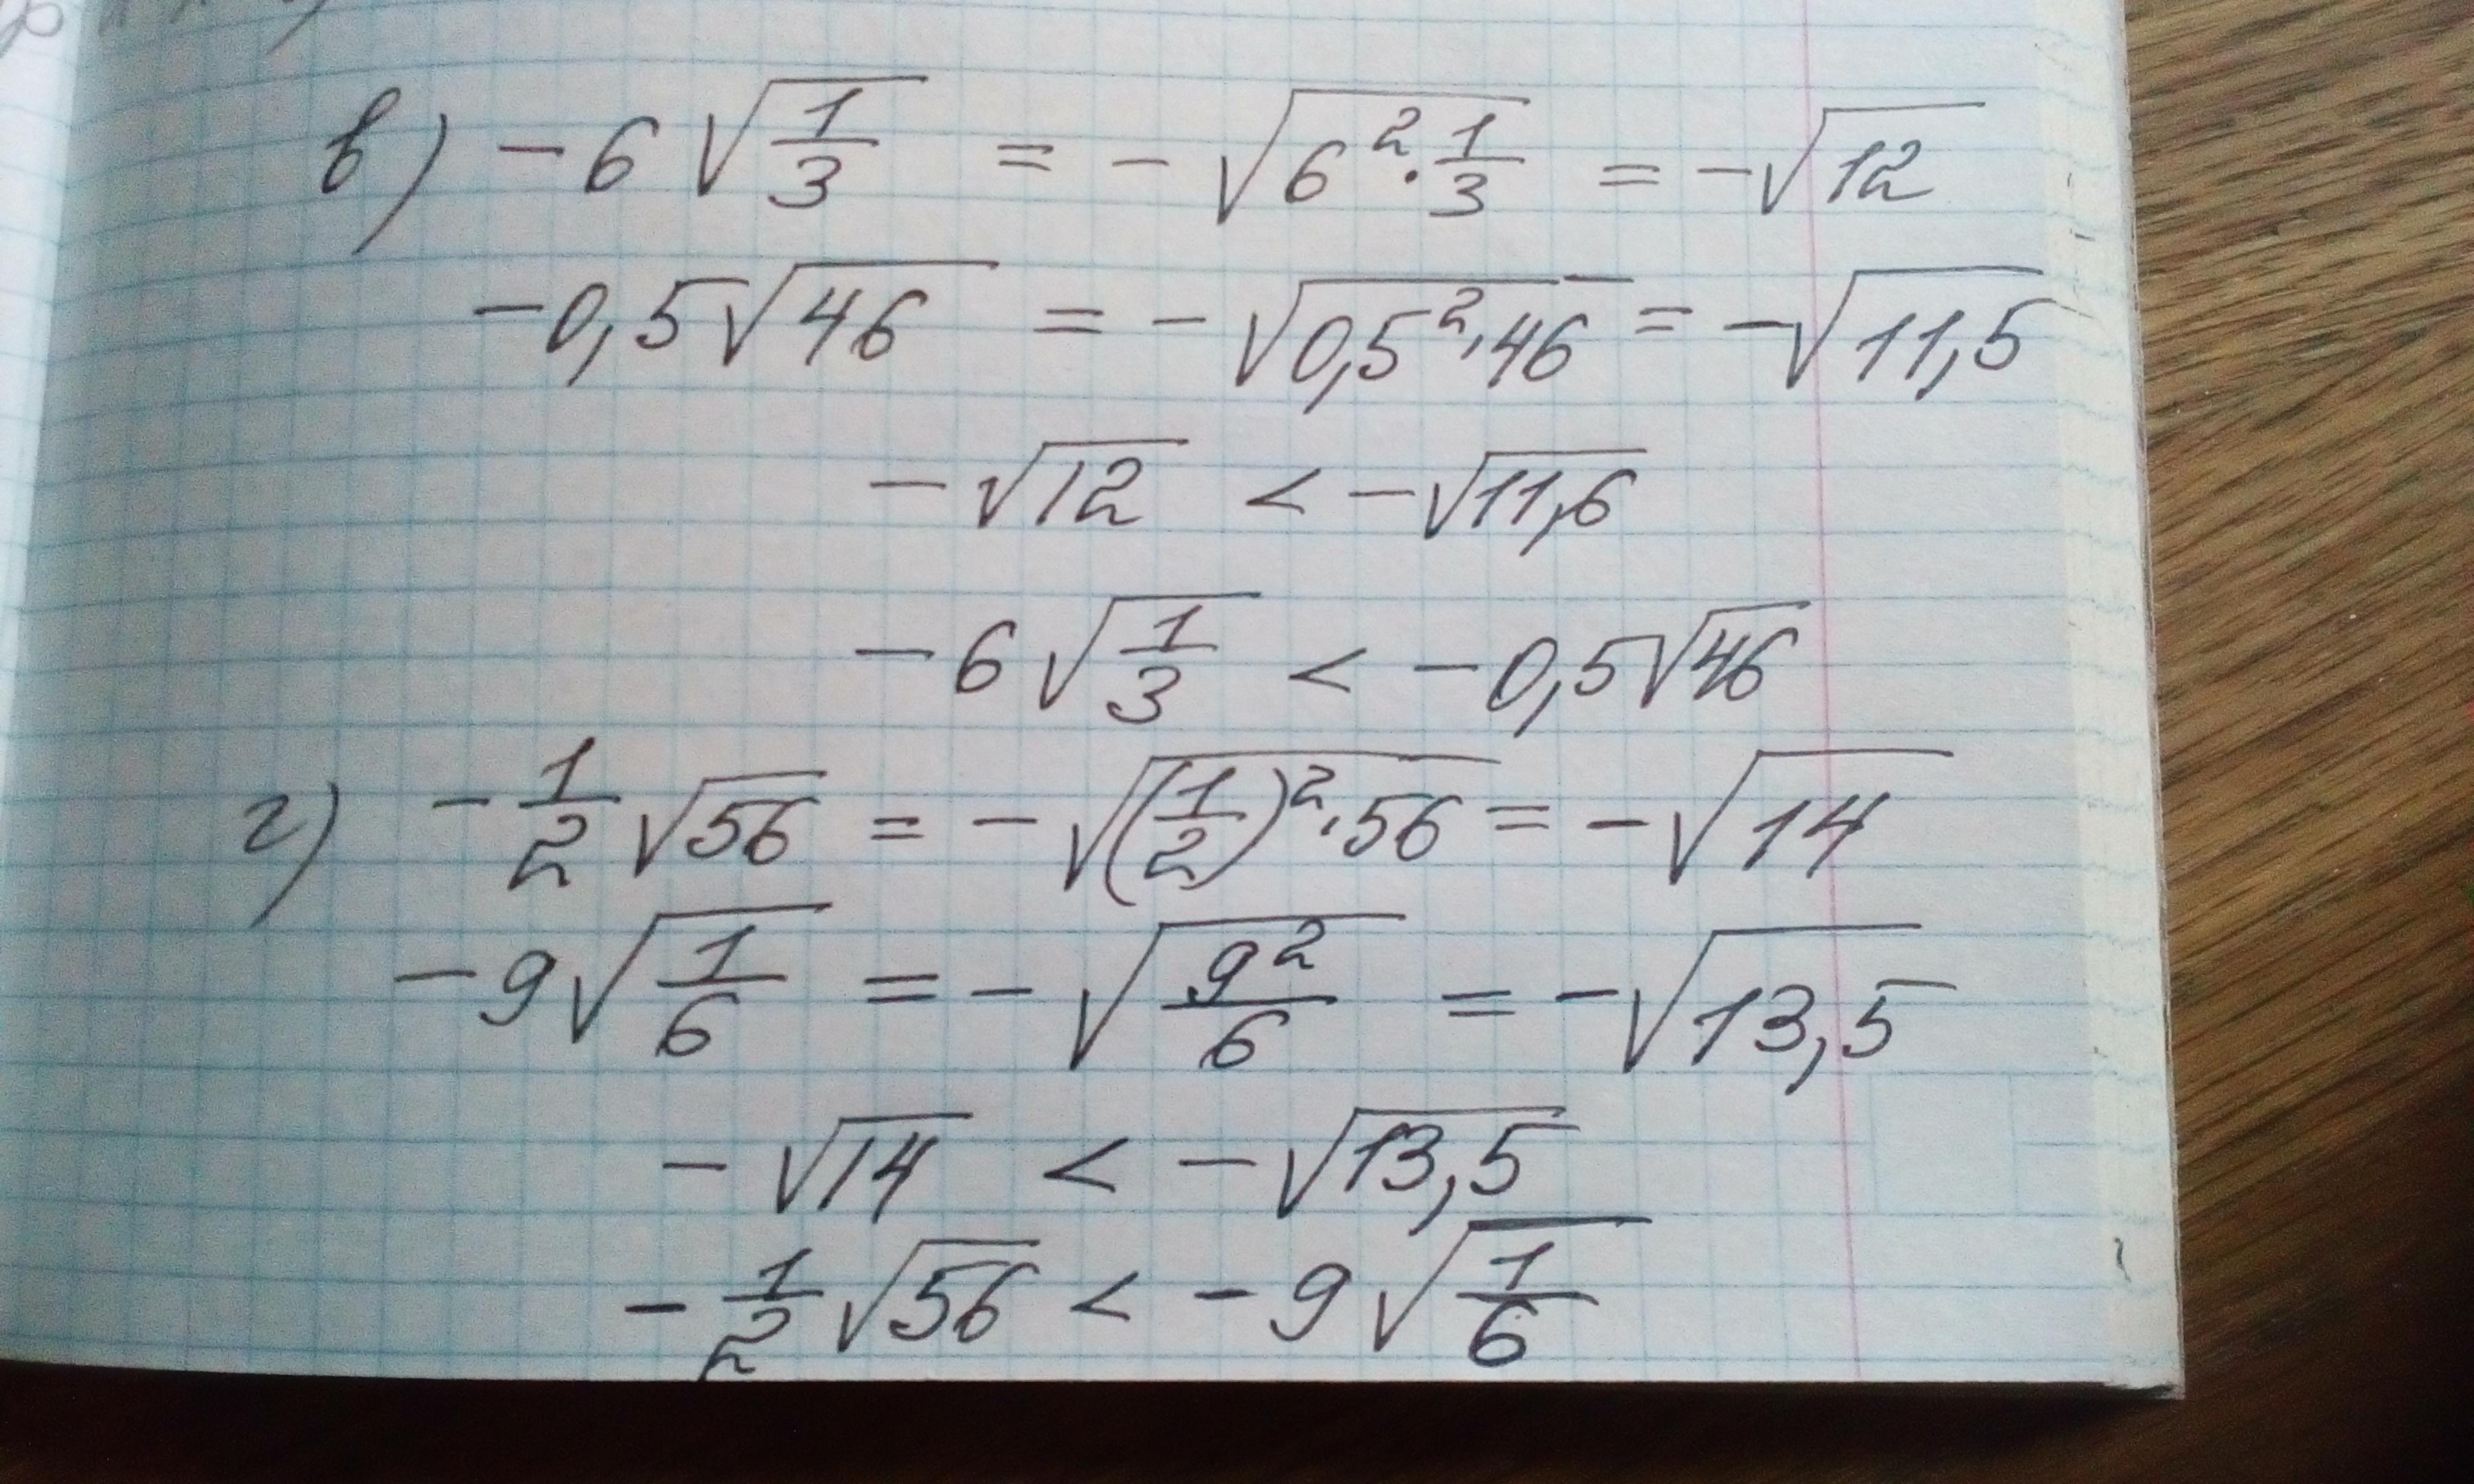 в) -6√(1/3) = -√(6²·1/3) = -√12
-0,5√46 = -√(0,5²·46) = -√11,5
-√12 < -√11,6
-6√(1/3) < -0,5√46
г) -1/2√56 = -√((1/2)²·56) = -√14
-9√(1/6) = -√(9²/6) = -√13,5
-√14 < -√13,5
-1/2√56 < -9√(1/6)